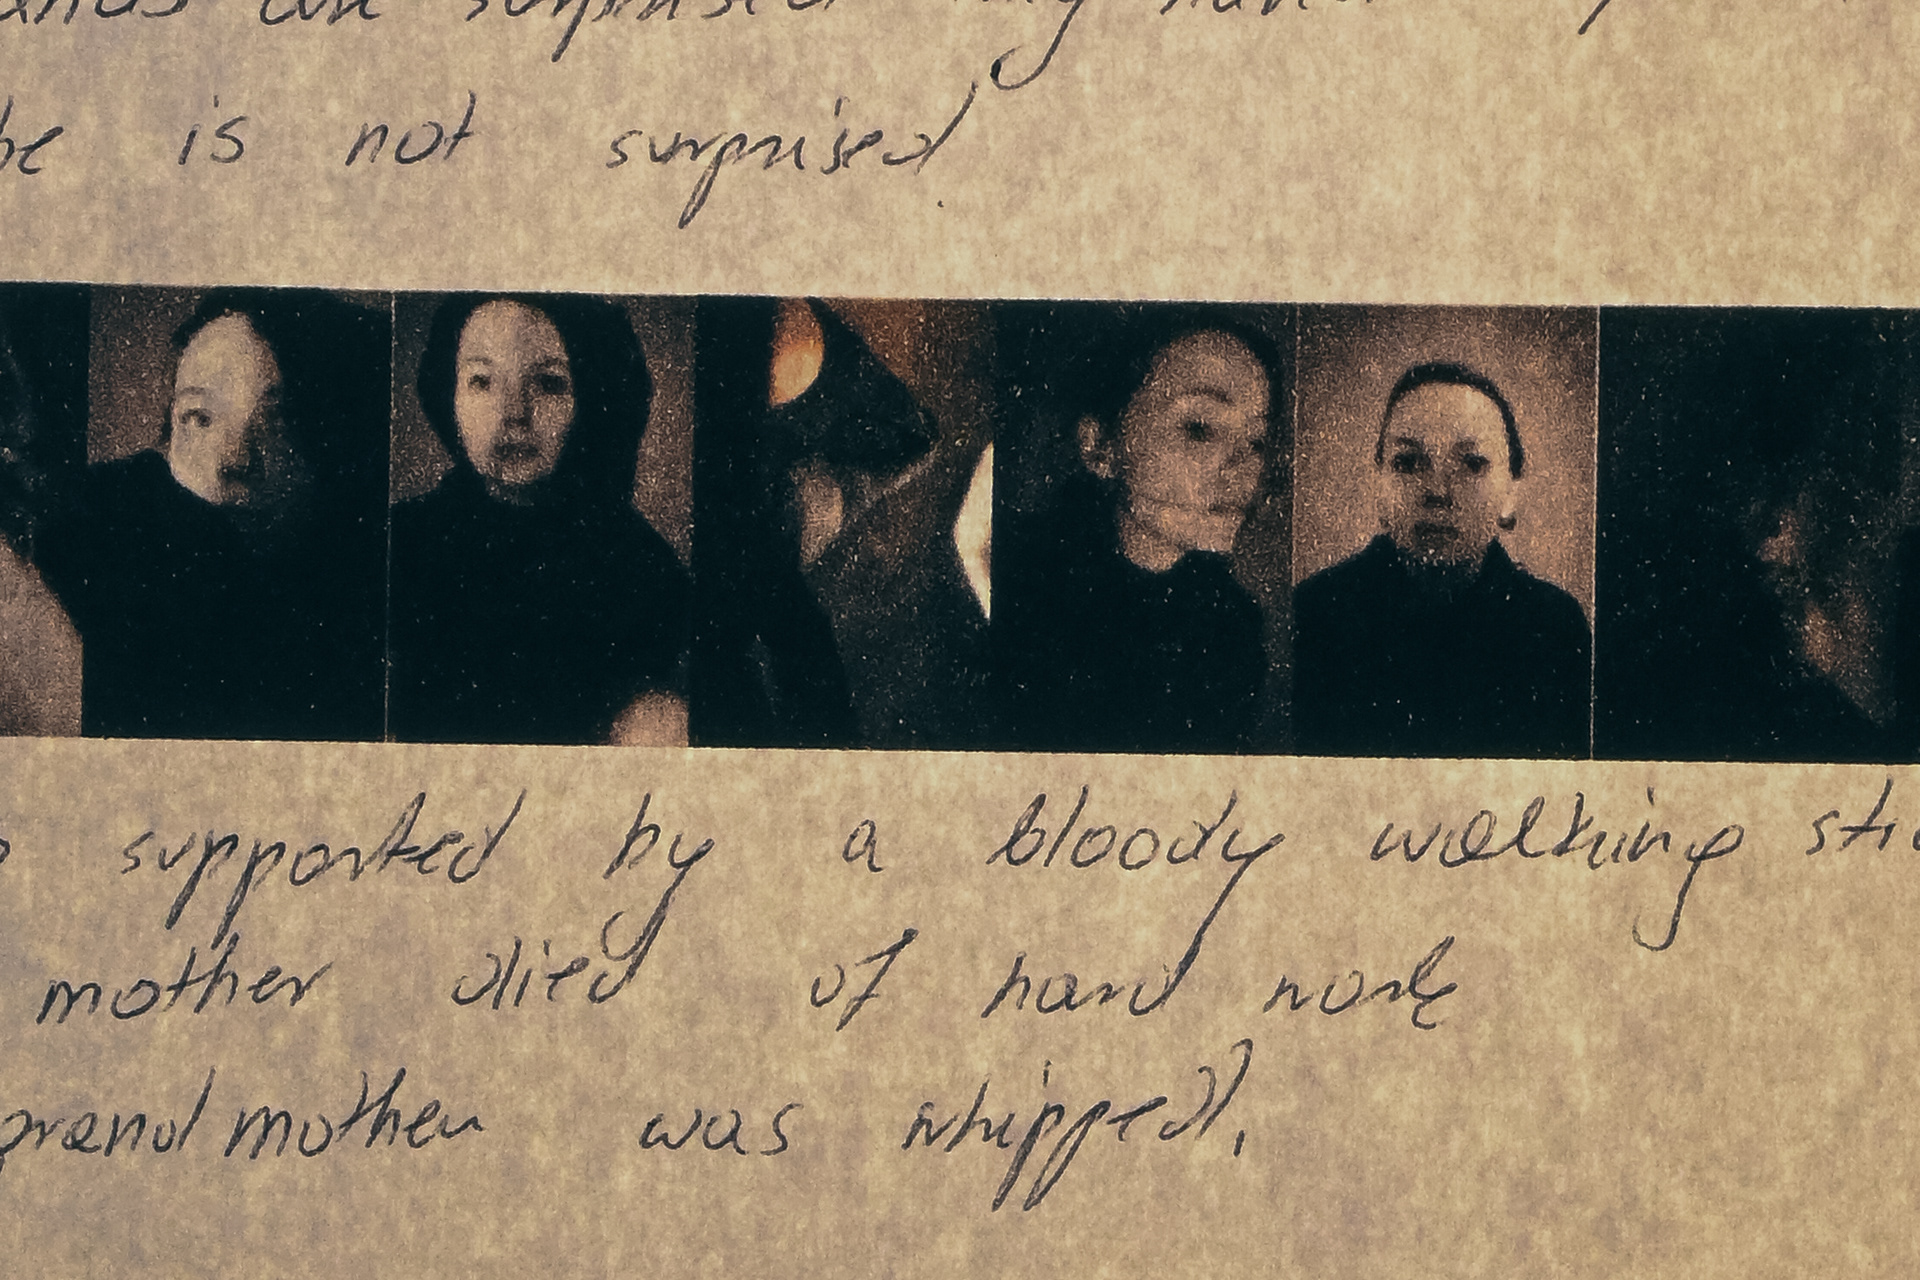 are surprised my
is not surprised
supported by a bloody walking
mother died of hard work
grandmother was whipped.